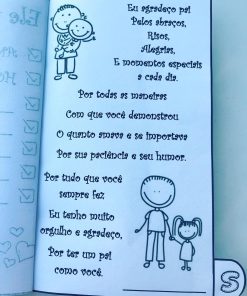 Eu agradeço pai
Pelos abraços,
Risos,
Alegrias,
E momentos especiais
a cada dia.
Por todas as maneiras
Com que você demonstrou
O quanto amava e se importava
Por sua paciência e seu humor.
Por tudo que você
sempre fez
Eu tenho muito
orgulho e agradeço,
Por ter um pai
como você.
Ele
S